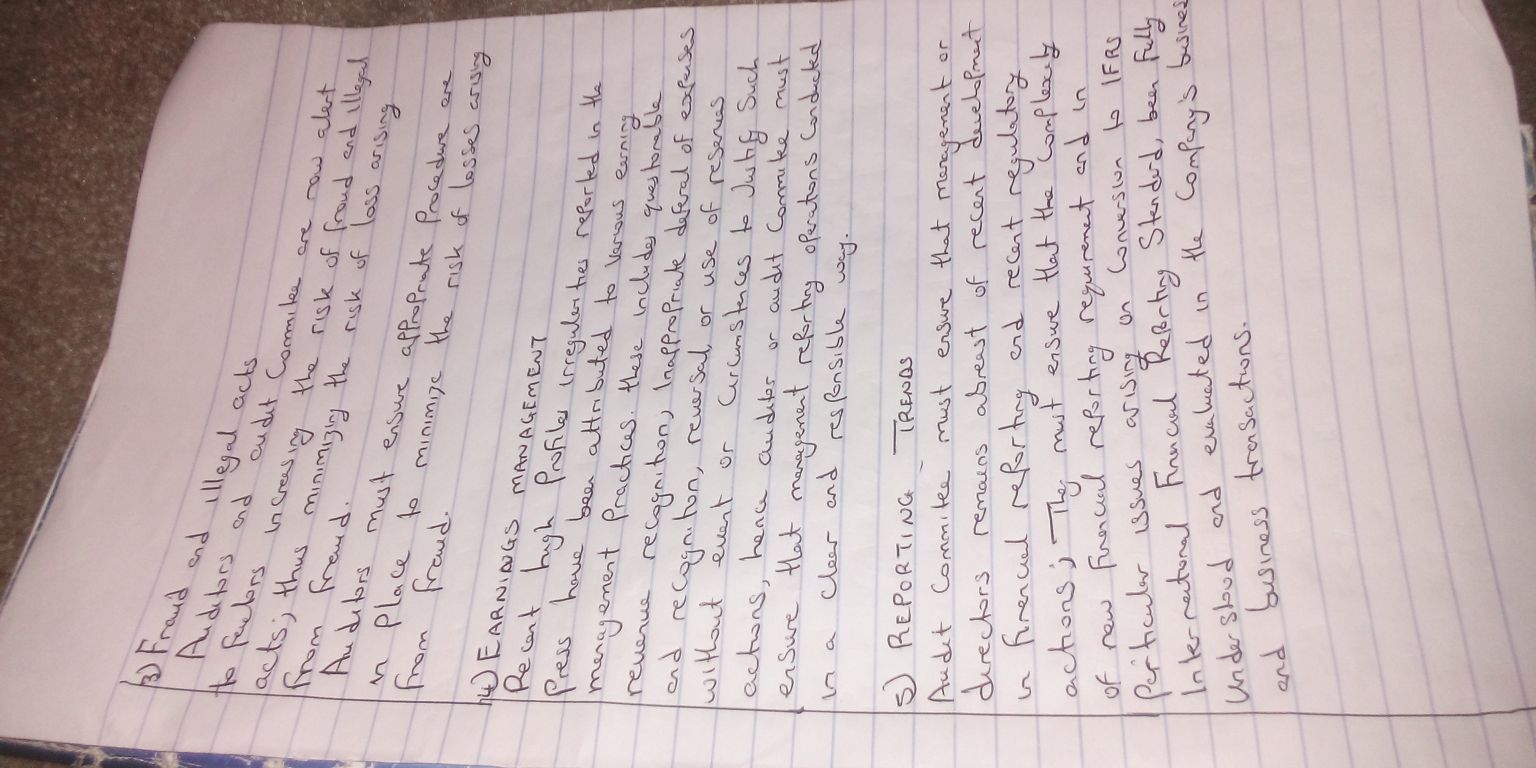 3) Fraud and illegal acts
Auditors and audit Commitee are now alert
to factors increasing the risk of fraud and illegal
acts; thus minimizing the risk of loss arising
from fraud.
Auditors must ensure appropriate Procedure are
in place to minimize the risk of losses arising
from fraud.
4) EARNINGS MANAGEMENT
Recent high Profile irregularities reported in the
Press have been attributed to various earning
management Practices. these includes questionable
revenue recognition, Inappropriate deferal of expenses
and recognition, reversal or use of reserves
without event or circumstances to Justify Such
actions, hence auditor or audit Commitee must
ensure that management reporting operations Conducted
in a clear and responsible way.
5) REPORTING TRENDS
Audit Commitee must ensure that management or
directors remains abreast of recent development
in financial reporting and recent regulatory
actions; They must ensure that the Complexity
of new financial reporting requirement and in
Particular issues arising on Conversion to IFRS
International Financial Reporting Standard, been fully
Understood and evaluated in the Company's business
and business transactions.